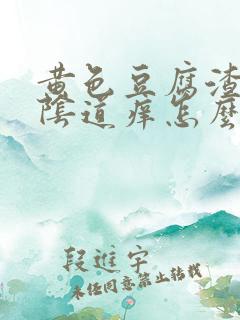 黄色豆腐渣
陰道痒怎麼
段進宇
未经同意禁止转载